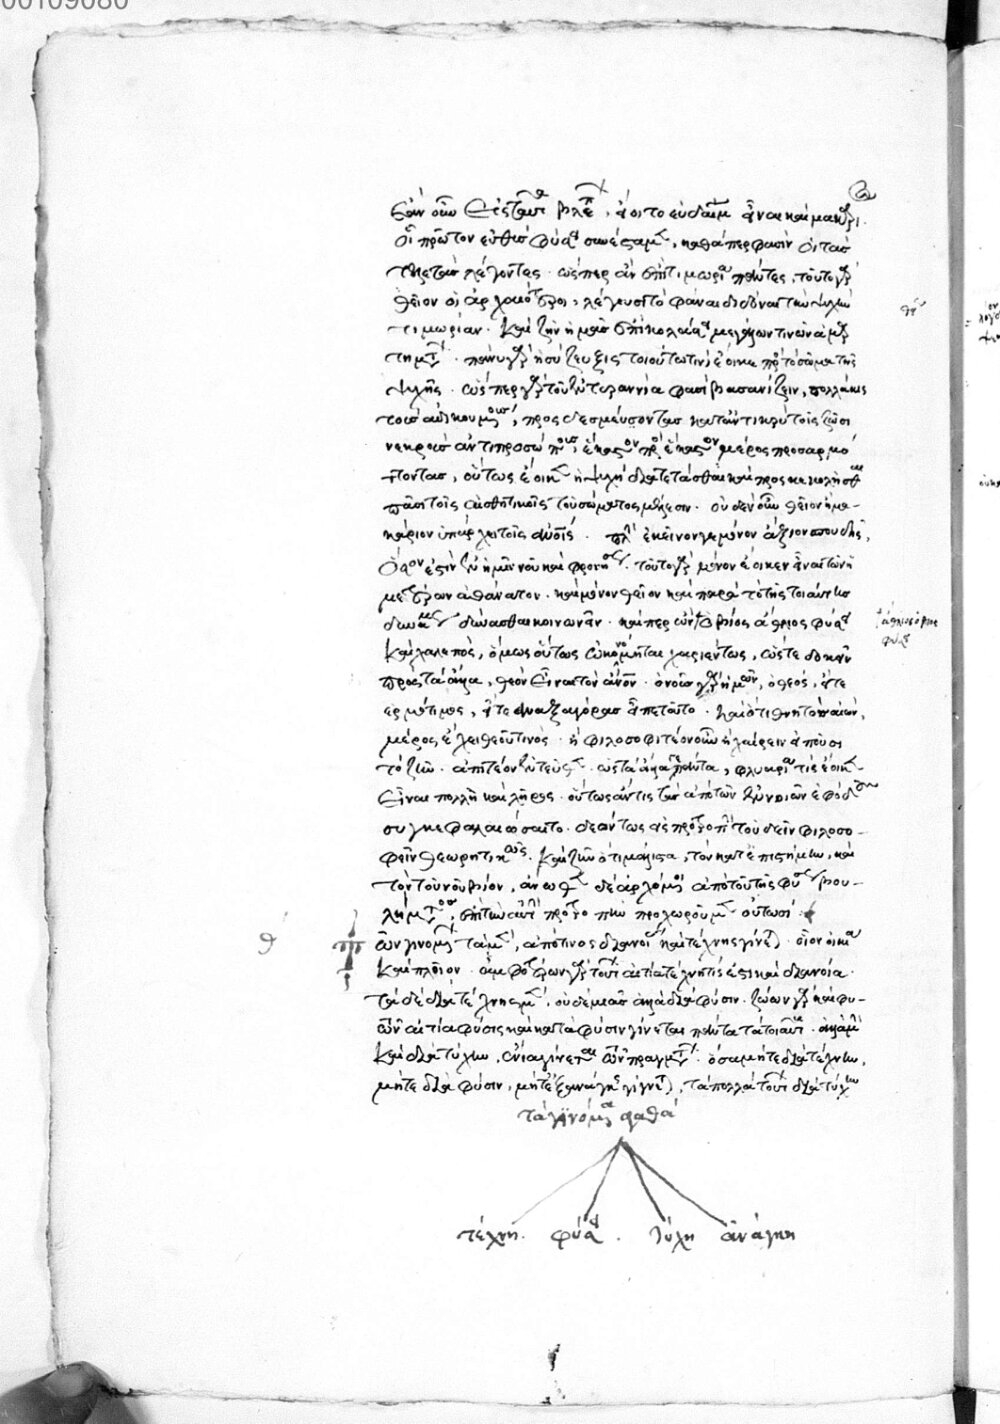 ἐὰν οὖν εἰς ταῦτα βλέπων, οἴοιτο εὐδαίμων εἶναι καὶ μακάρι.
οἳ πρῶτον εὐθὺς φύσει συνέσταμεν, καθάπερ φασὶν οἱ τὰς
τελετὰς λέγοντες. ὥσπερ ἂν ἐπὶ τιμωρία πάντες, τοῦτο γὰρ
θεῖον οἱ ἀρχαιότεροι, λέγουσι τὸ φάναι διδόναι τὴν ψυχὴν
τιμωρίαν. καὶ ζῆν ἡμᾶς ἐπὶ κολάσει μεγάλων τινῶν ἁμαρ
τημάτων. πάνυ γὰρ ἡ σύζευξις τοιούτω τινὶ ἔοικε πρὸς τὸ σῶμα τῆς
ψυχῆς. ὥσπερ γὰρ τοὺς ἐν τυραννία φασὶ βασανίζειν, πολλάκις
τοὺς ἁλισκομένους, προσδεσμεύοντας κατ᾽ ἀντικρὺ τοῖς ζῶσι
νεκροὺς ἀντιπροσώπους, ἕκαστον πρὸς ἕκαστον μέρος προσαρμό
ττοντας, οὕτως ἔοικεν ἡ ψυχὴ διατετάσθαι καὶ προσκεκολλῆσθαι
πᾶσι τοῖς αἰσθητικοῖς τοῦ σώματος μέλεσιν. οὐδὲν οὖν θεῖον ἢ μα-
κάριον ὑπάρχει τοῖς ἀνθρώποις. πλὴν ἐκεῖνό γε μόνον ἄξιον σπουδῆς,
ὅσον ἐστὶν ἐν ἡμῖν νοῦ καὶ φρονήσεως. τοῦτο γὰρ μόνον ἔοικεν εἶναι τῶν ἡ
μετέρων ἀθάνατον. καὶ μόνον θεῖον καὶ παρὰ τὸ τῆς τοιαύτης
δυνάμεως δύνασθαι κοινωνεῖν. καίπερ ὢν ὁ βίος ἄθλιος φύσει
καὶ χαλεπὸς, ὅμως οὕτως ὠκονόμηται χαριέντως, ὥστε δοκεῖν
πρὸς τὰ ἄλλα, θεὸν εἶναι τὸν ἄνθρωπον. ὁ νοῦς γὰρ ἡμῶν, ὁ θεός, εἴτε
ἑρμότιμος, εἴτε ἀναξαγόρας εἶπε τοῦτο. καὶ ὅτι θνητὸς αἰὼν,
μέρος ἔχει θεοῦ τινός. ἢ φιλοσοφητέον οὖν ἢ χαίρειν εἰποῦσι
τὸ ζῆν. ἀπιτέον ἐντεῦθεν. ὡς τὰ ἄλλα πάντα, φλυαρία τις ἔοικεν
εἶναι πολλὴ καὶ λῆρος. οὕτως ἄν τις τὰς ἀπὸ τῶν ἐννοιῶν ἐφόδους
συγκεφαλαιώσαιτο. δεόντως εἰς προτροπὴν τοῦ δεῖν φιλοσο-
φεῖν θεωρητικῶς. καὶ ζῆν ὅτι μάλιστα, τὸν κατ᾽ ἐπιστήμην, καὶ
τὸν τοῦ νοῦ βίον, ἄνωθεν δὲ ἀρχόμενοι ἀπὸ τοῦ τῆς φύσεως βου-
λήματος, ἐπὶ τὴν αὐτὴν προτροπὴν προχωροῦμεν οὑτωσί.
θ
τῶν γινομένων τὰ μὲν, ἀπό τινος διανοίας καὶ τέχνης γίνεται. οἷον οἰκία
καὶ πλοῖον. ἀμφοτέρων γὰρ τούτων αἰτία τέχνη τίς ἐστι καὶ διάνοια.
τὰ δὲ διὰ τέχνης μὲν, οὐδεμιᾶς ἀλλὰ διὰ φύσιν. ζώων γὰρ καὶ φυ-
τῶν αἰτία φύσις καὶ κατὰ φύσιν γίνεται πάντα τὰ τοιαῦτα. ἀλλὰ μὴν
καὶ διὰ τύχην, ἔνια γίνεται τῶν πραγμάτων. ὅσα μήτε διὰ τέχνην,
μήτε διὰ φύσιν, μήτ᾽ ἐξ ἀνάγκης γίγνεται, τὰ πολλὰ τούτων διὰ τύχην
τὰ γινόμενα ἀγαθά
τέχνη. φύσει. τύχη ἀνάγκη